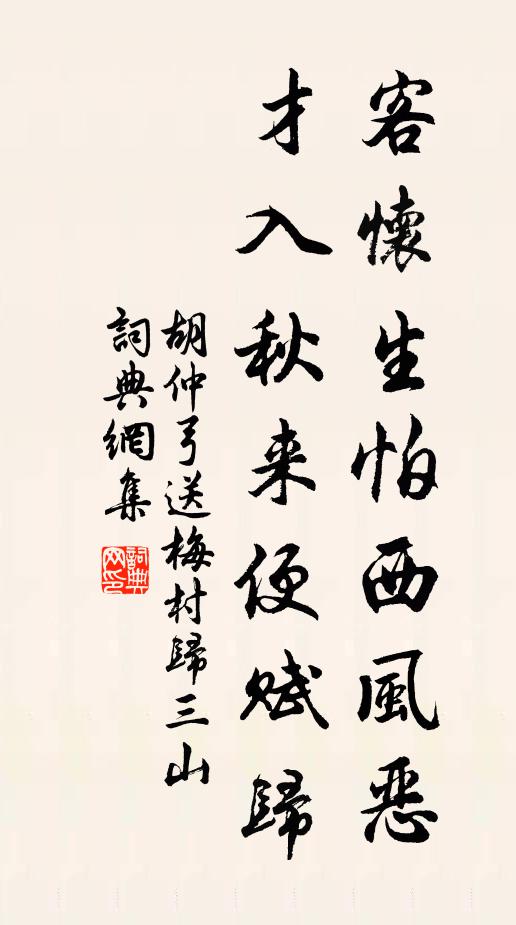 客懷生怕西風惡
才入秋来便賦歸
胡仲弓送梅村歸三山
詞典網集
詞典网印